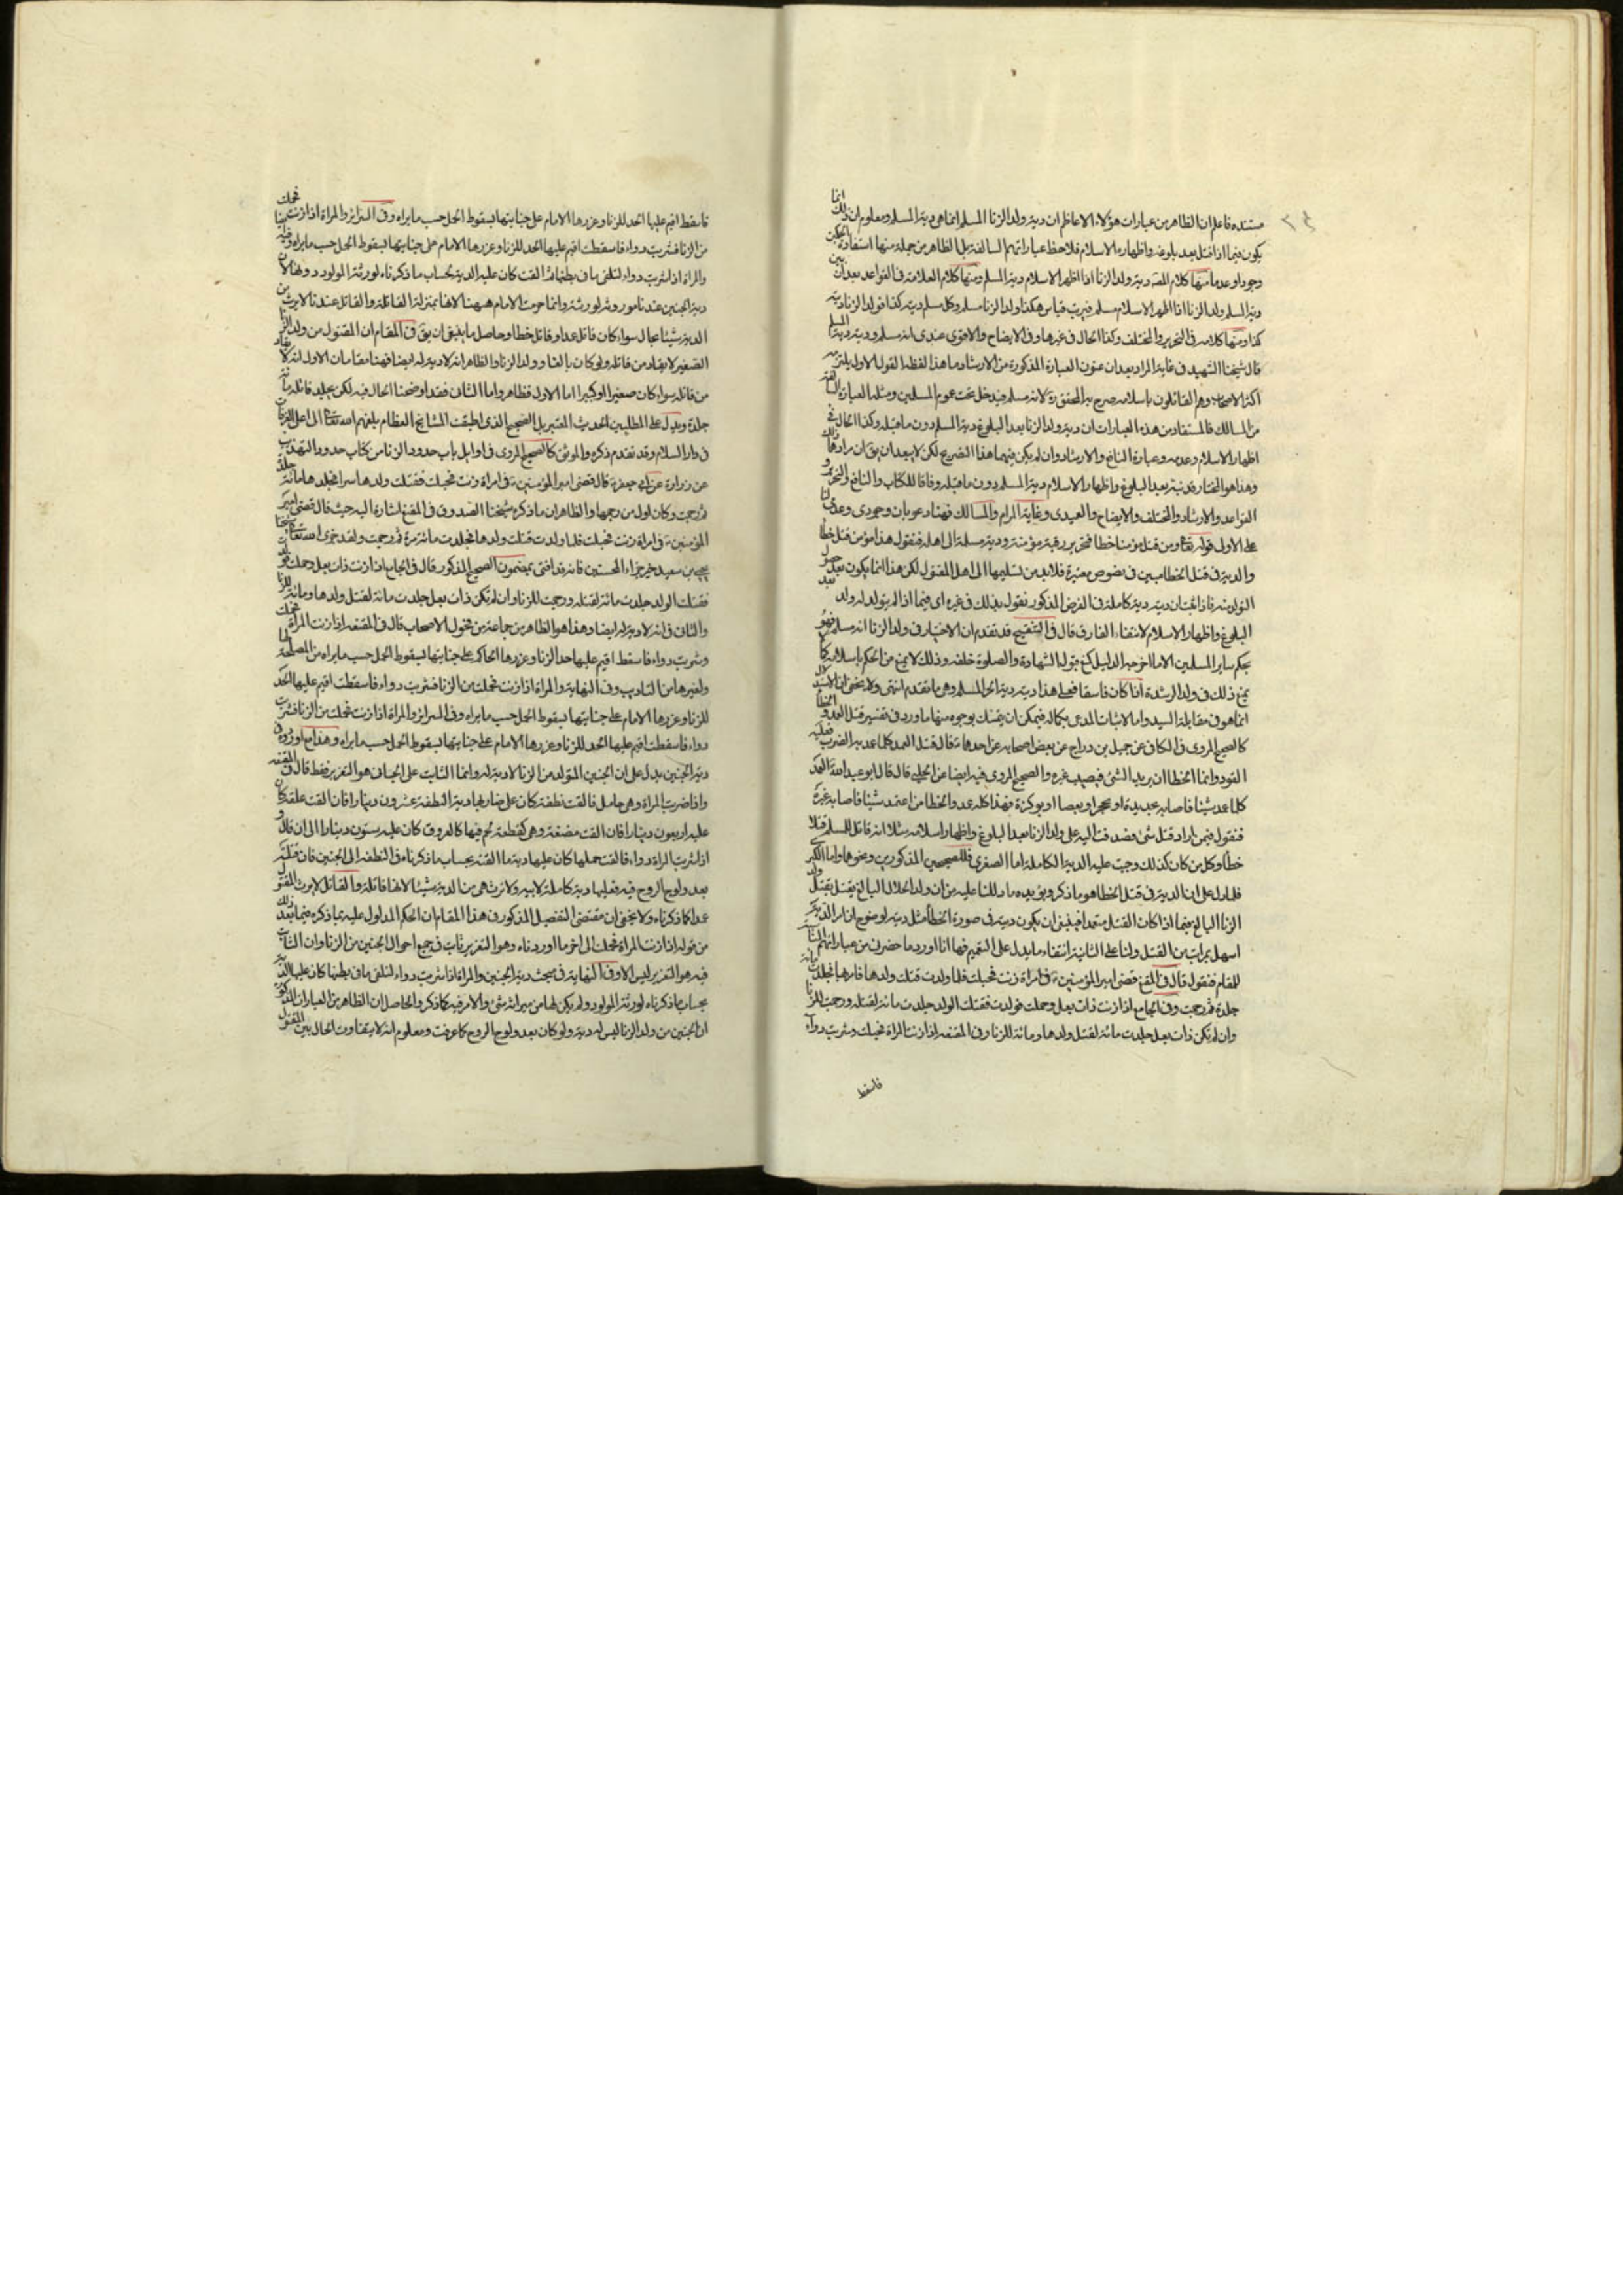 مستنده فاعلم ان الظاهر من عبارات هؤلاء الاعاظم ان دية ولد الزنا المسلم انما هي دية المسلم ومعلوم ان ذلك انما
يكون فيما اذا قتل بعد بلوغه واظهاره الاسلام فلاحظ عباراتهم السالفة بل الظاهر من جملة منها استفادة الحكمين
وجودا وعدما منها كلام المصـ دية ولد الزنا اذا اظهر الاسلام دية المسلم ومنها كلام العلامة في القواعد بعد ان بين
دية المسلم ولد الزنا اذا اظهر الاسلام مسلم فيرتب قياس هكذا ولد الزنا مسلم وكل مسلم ديته كذا فولد الزنا ديته
كذا ومنها كلامه في التحرير والمختلف وكذا الحال في غيرها وفي الايضاح والاقوى عندي انه مسلم وديته دية المسلم
قال شيخنا الشهيد في غاية المراد بعد ان عنون العبارة المذكورة من الارشاد ما هذا لفظه القول الاول يلتزمه
اكثر الاصحاب وهم القائلون باسلامه صرح به المحقق ره لانه مسلم فيدخل تحت عموم المسلمين ومثلها العبارة السالفة
من المسالك فالمستفاد من هذه العبارات ان دية ولد الزنا بعد البلوغ دية المسلم دون ما قبله وكذا الحال في
اظهار الاسلام وعدمه وعبارة النافع والارشاد وان لم يكن فيهما هذا التصريح لكن لا يبعد ان يق ان مرادهما ذلك
وهذا هو المختار فديته بعد البلوغ واظهار الاسلام دية المسلم دون ما قبله وفاقا للكتاب والنافع والتحرير و
القواعد والارشاد والمختلف والايضاح والعميدي وغاية المرام والمسالك فهنا دعويان وجودي وعدمي لنا
على الاول قوله تعالى ومن قتل مؤمنا خطا فتحرير رقبة مؤمنة ودية مسلمة الى اهله فنقول هذا مؤمن قتل خطا
والدية في قتل الخطا مبين في نصوص معتبرة فلابد من تسليمها الى اهل المقتول لكن هذا انما يكون بعد حصول
التولد منه فاذا ثبت ان ديته دية كاملة في الفرض المذكور نقول بذلك في غيره اي فيما اذا لم يتولد له ولد بعد
البلوغ واظهار الاسلام لانتفاء الفارق قال في التنقيح قد تقدم ان الاختيار في ولد الزنا انه مسلم فهو
بحكم ساير المسلمين الا ما اخرجه الدليل كمنع قبول الشهادة والصلوة خلفه وذلك لا يمنع من الحكم باسلامه كما
يمنع ذلك في ولد الرشدة اذا كان فاسقا فعلى هذا ديته دية الحر المسلم وهي ما تقدم انتهى ولا يخفى ان الاستدلال
انما هو في مقابلة السيد واما الاثبات المدعى بكماله فيمكن ان يتمسك بوجوه منها ما ورد في تفسير قتل العمد والخطا
كالصحيح المروي في الكافي عن جميل بن دراج عن بعض اصحابه عن احدهما ع قال قتل العمد كلما عمد به الضرب فعليه
القود وانما الخطا ان يريد الشئ فيصيب غيره والصحيح المروي فيه ايضا عن الحلبي قال قال ابو عبد الله ع العمد
كلما عمد شيئا فاصابه بحديدة او بحجر او بعصا او بوكزة فهذا كله عمد والخطا من اعتمد شيئا فاصاب غيره
فنقول فيمن اراد قتل شئ فقصد قتاليه على ولد الزنا بعد البلوغ واظهار اسلامه مثلا انه قاتل للمسلم قتلا
خطا وكل من كان كذلك وجبت عليه الدية الكاملة اما الصغرى فللصحيحين المذكورين ونحوهما واما الكبرى
فلما دل على ان الدية في قتل الخطا هو ما ذكر ويؤيده ما دللنا عليه من ان ولد الحلال البالغ يقتل بقتل ولد
الزنا البالغ فيما اذا كان القتل متعمدا فينبغي ان يكون ديته في صورة الخطا مثل ديته لوضوح ان امر الدية
اسهل بمراتب من القتل ولنا على الثانية انتفاء ما يدل على التعميم فيها انا اورد ما حضرني من عباراتهم
للمقام فنقول قال في المقنع قضى امير المؤمنين ع في امراة زنت فحبلت فلما ولدت قتلت ولدها فامر بها فجلدت مائة
جلدة ثم رجمت وفي الجامع اذا زنت ذات بعل وحملت فولدت فقتلت الولد جلدت مائة لقتله ورجمت للزنا
وان لم تكن ذات بعل جلدت مائة لقتل ولدها ومائة للزنا وفي المقنعه اذا زنت المراة فحبلت وشربت دواء
فاسقط
فاسقط اقيم عليها الحد للزنا وعزرها الامام على جنايتها بسقوط الحمل حسب ما يراه وفي السرائر والمراة اذا زنت فحملت
من الزنا فشربت دواء فاسقطت اقيم عليها الحد للزنا وعزرها الامام على جنايتها بسقوط الحمل حسب ما يراه وفيه
والمراة اذا شربت دواء لتلقي ما في بطنها ثم القت كان عليها الدية بحساب ما ذكرناه لورثة المولود دونها لان
دية الجنين عندنا موروثة لورثته وانما حرمت الام ههنا لانها بمنزلة القاتلة والقاتل عندنا لا يرث من
الدية شيئا بحال سواء كان قاتل عمد او قاتل خطا وحاصل ما ينبغي ان يق في المقام ان المقتول من ولد الزنا
الصغير لا يقاد من قاتله ولو كان بالغا وولد الزنا والظاهر انه لا دية له ايضا فههنا مقامان الاول انه لا يقاد
من قاتله سواء كان صغيرا او كبيرا اما الاول فظاهر واما الثاني فقد اوضحنا الحال فيه لكن يجلد قاتله مائة
جلدة ويدل على المطلبين الحديث المعتبر بل الصحيح الذي اطبقت المشايخ العظام بلغهم الله تعالى الى اعلى الغرفات
في دار السلام وقد تقدم ذكره والموثق كالصحيح المروي في اوايل باب حدود الزنا من كتاب حدود التهذيب
عن زرارة عن ابي جعفر ع قال قضى امير المؤمنين ع في امراة زنت فحبلت فقتلت ولدها سرا فجلدها مائة جلدة
ثم رجمت وكان اول من رجمها والظاهر ان ما ذكره شيخنا الصدوق في المقنع اشارة اليه حيث قال قضى امير
المؤمنين ع في امراة زنت فحبلت فلما ولدت قتلت ولدها فجلدت مائة مرة ثم رجمت ولقد جزى الله تعالى شيخنا
يحيى بن سعيد خير جزاء المحسنين فانه قد افتى بمضمون الصحيح المذكور قال في الجامع اذا زنت ذات بعل وحملت فولدت
فقتلت الولد جلدت مائة لقتله ورجمت للزنا وان لم تكن ذات بعل جلدت مائة لقتل ولدها ومائة للزنا
والثاني في انه لا دية له ايضا وهذا هو الظاهر من جماعة من فحول الاصحاب قال في المقنعه اذا زنت المراة فحملت
وشربت دواء فاسقط اقيم عليها حد الزنا وعزرها الحاكم على جنايتها بسقوط الحمل حسب ما يراه من المصلحة لها
ولغيرها من التاديب وفي النهاية والمراة اذا زنت فحملت من الزنا فشربت دواء فاسقطت اقيم عليها الحد
للزنا وعزرها الامام على جنايتها بسقوط الحمل حسب ما يراه وفي السرائر والمراة اذا زنت فحملت من الزنا فشربت
دواء فاسقطت اقيم عليها الحد للزنا وعزرها الامام على جنايتها بسقوط الحمل حسب ما يراه وهذا مع اوردوه في
دية الجنين يدل على ان الجنين المتولد من الزنا لا دية له وانما الثابت على الجاني هو التعزير فقط قال في المقنعه
واذا ضربت المراة وهي حامل فالقت نطفة كان على ضاربها دية النطفة عشرون دينارا فان القت علقة كان
عليه اربعون دينارا فان القت مضغة وهي كقطعة لحم فيها كالعروق كان عليه ستون دينارا الى ان قال و
اذا شربت المراة دواء فالقت حملها كان عليها دية ما القته بحساب ما ذكرناه في النطفة الى الجنين فان قتلته
بعد ولوج الروح فيه فعليها دية كاملة لابيه ولا ترث هي من الدية شيئا لانها قاتلة والقاتل لا يرث المقتول
عمدا كما ذكرناه ولا يخفى ان مقتضى التفصيل المذكور في هذا المقام ان الحكم المدلول عليه بما ذكره فيما بعد ذلك
من قوله اذا زنت المراة فحملت الى اخر ما اوردناه وهو التعزير ثابت في جميع احوال الجنين من الزنا وان الثابت
فيه هو التعزير ليس الا وفي النهاية في مبحث دية الجنين والمراة اذا شربت دواء لتلقي ما في بطنها كان عليها الدية
بحساب ما ذكرناه لورثة المولود ولم يكن لها من ميراثه شئ والامر فيه كما ذكر والحاصل ان الظاهر من العبارات المذكورة
ان الجنين من ولد الزنا ليس له دية ولو كان بعد ولوج الروح كما عرفت ومعلوم انه لا يتفاوت الحال بين المقتول